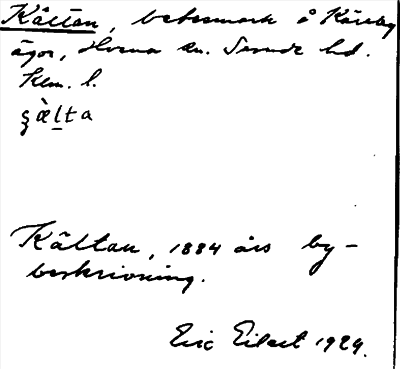 Kältan, betesmark å Käreby
ägor, Hvena sn. Sevede hd.
Klm. l.
ʂæ̀l̠ta
Kältan, 1884 års by-
beskrivning.
Eric Eilert 1929.